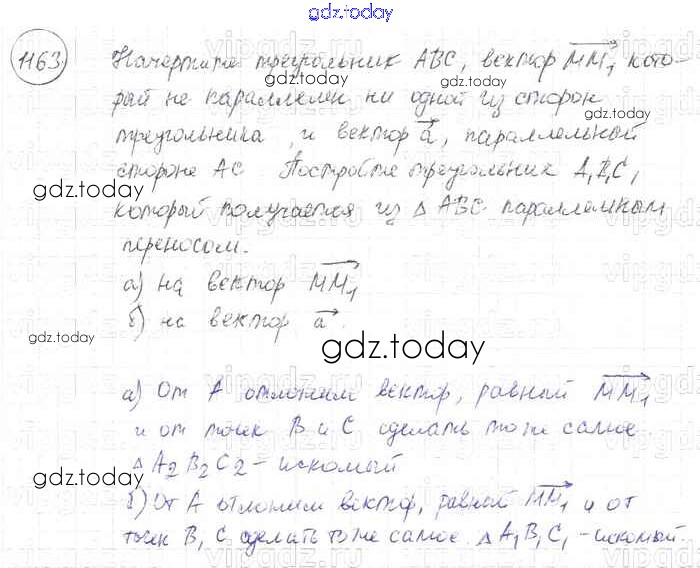 gdz.today
1163
Начертите треугольник ABC, вектор MM₁ кото-
рый не параллелен ни одной из сторон
треугольника, и вектор a, параллельный
стороне AC Постройте треугольник A₁B₁C₁
gdz.today
gdz.today
который получается из △ ABC параллельным
переносом.
а) на вектор MM₁
б) на вектор a.
gdz.today
gdz.today
а) От A отложим вектор, равный MM₁
и от точек B и C сделать то же самое
△ A₂B₂C₂ - искомый
gdz.today
gdz.today
б) От A отложим вектор, равный MM₁ и от
точек B, C сделать то же самое. △ A₁B₁C₁ - искомый.